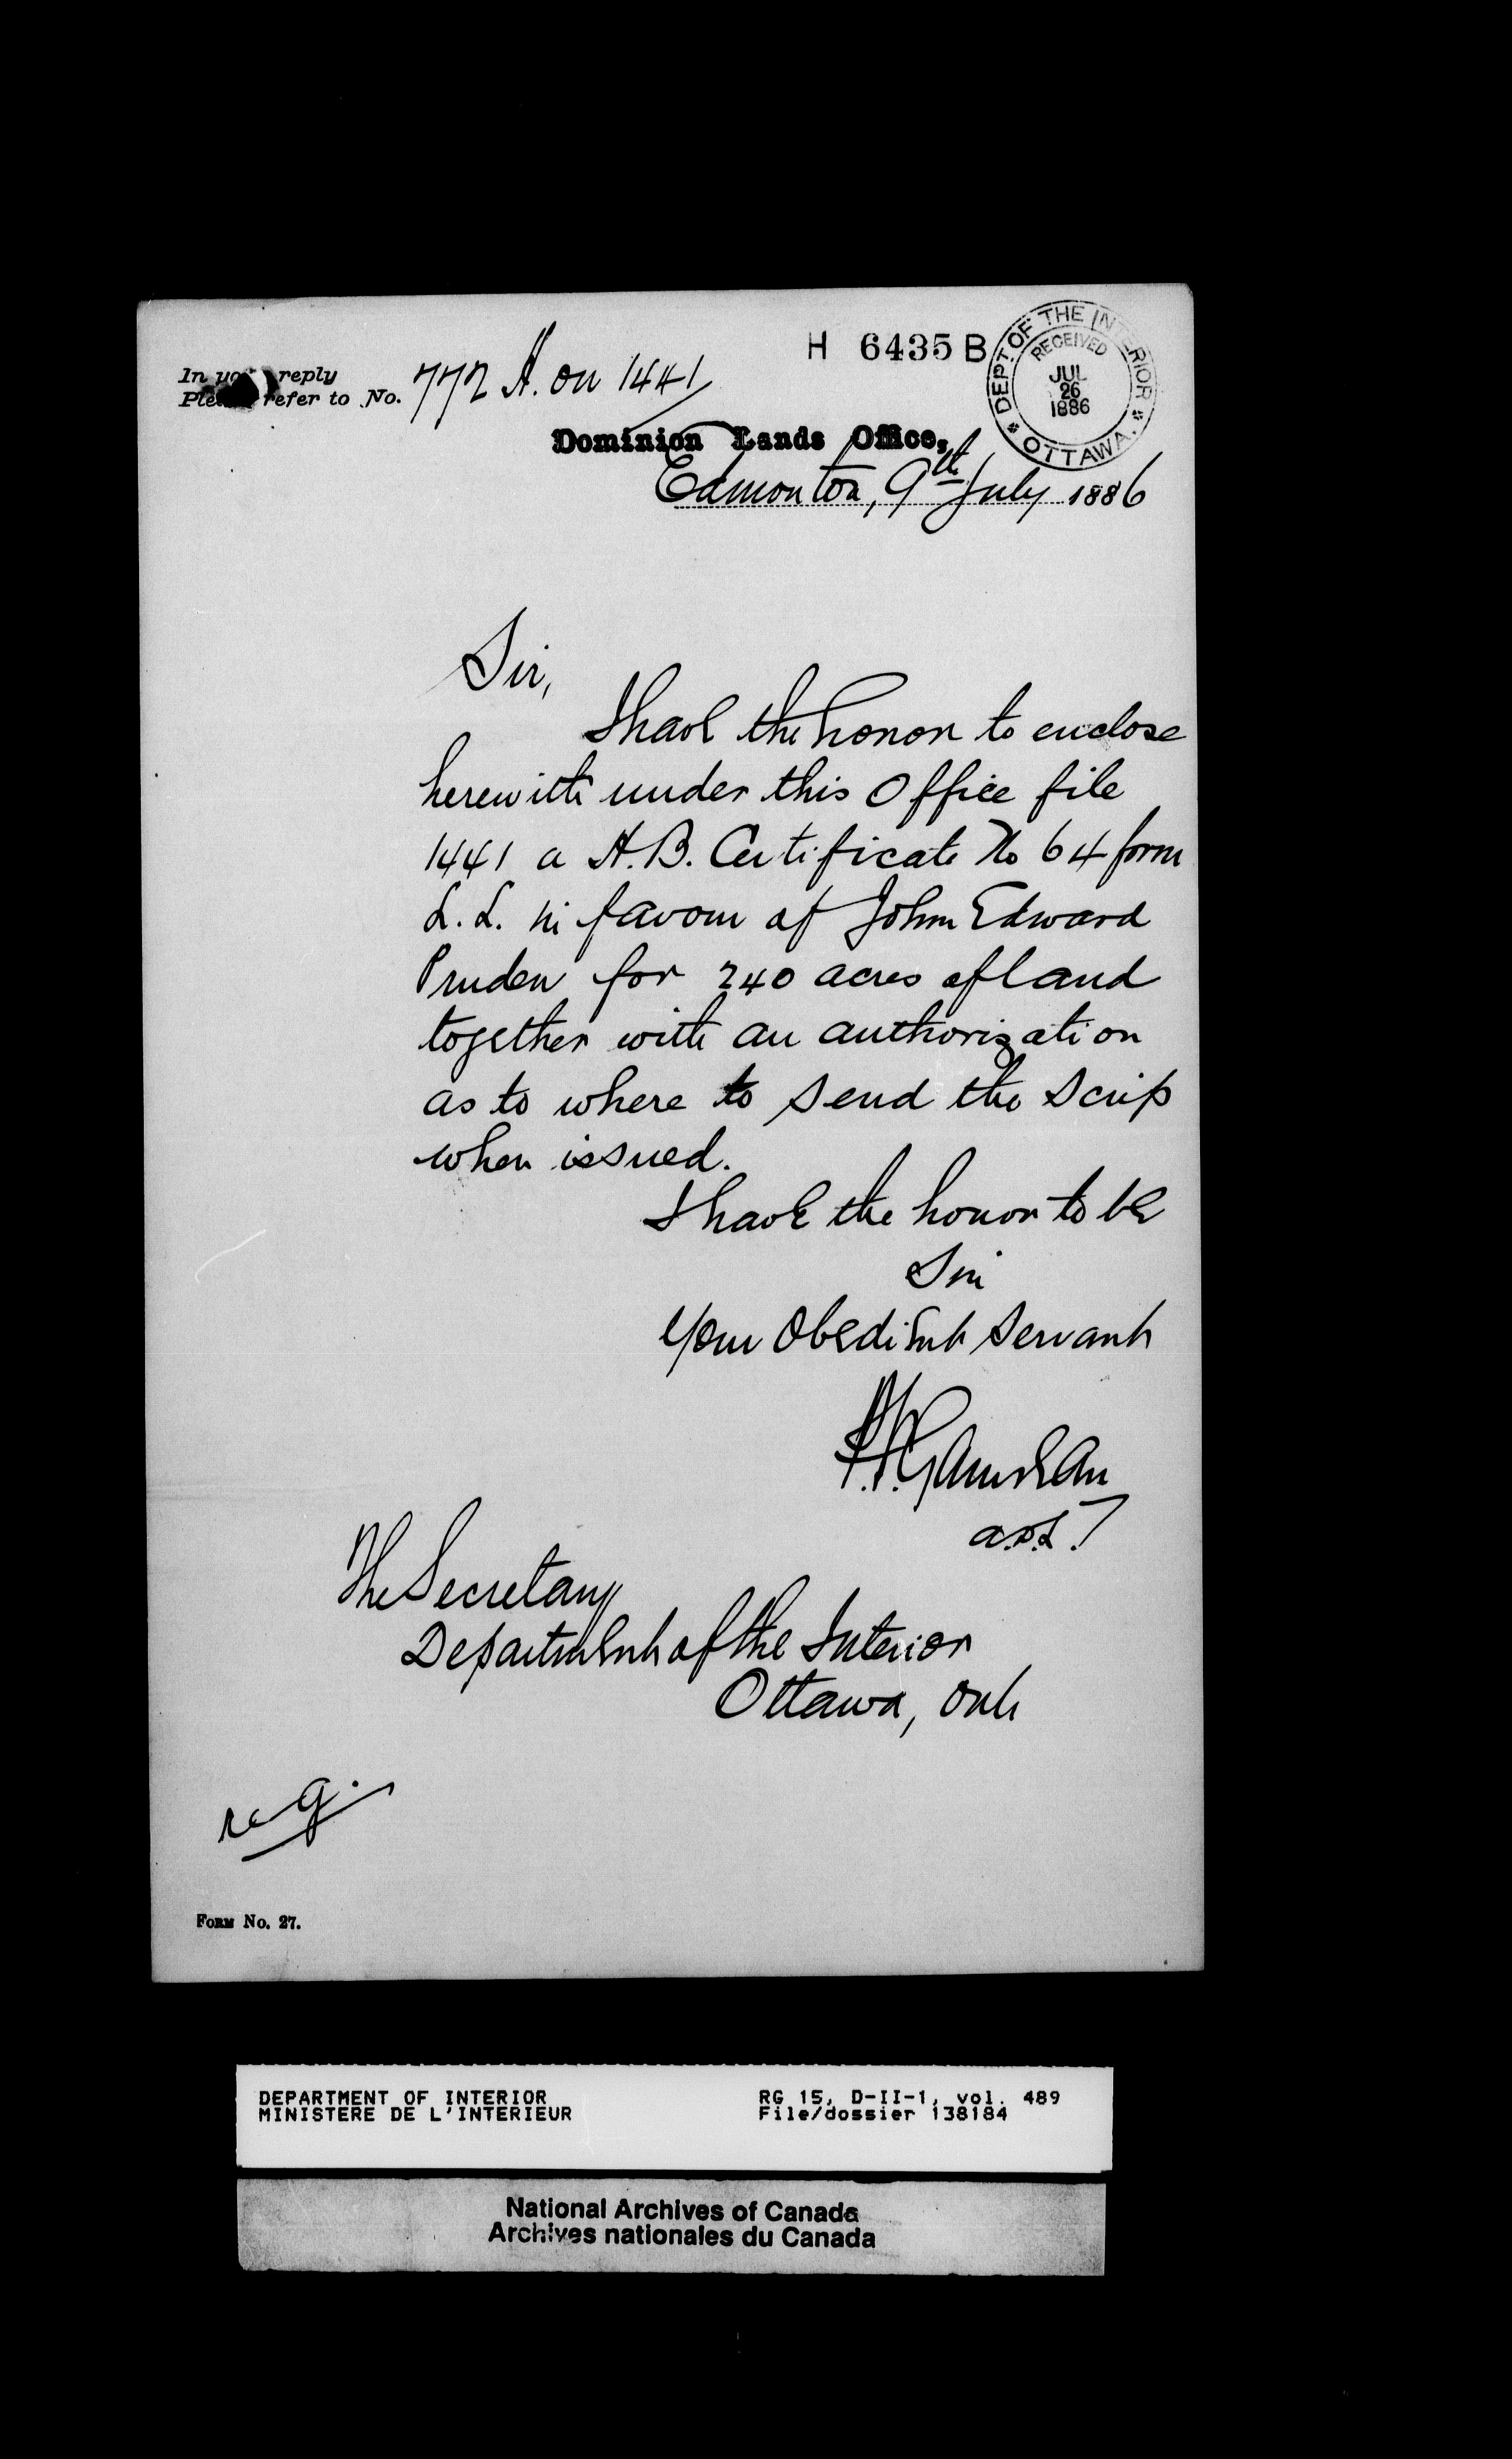 H 6435 B
DEPT OF THE INTERIOR
RECEIVED
JUL
26
1886
OTTAWA.
In your reply
Please refer to No. 772 A. on 1441
Dominion Lands Office,
Edmonton, 9th July 1886
Sir,
I have the honor to enclose
herewith under this Office file
1441 a H.B. Certificate No 64 form
L.L. in favour of John Edward
Pruden for 240 acres of land
together with an authorization
as to where to send the scrip
when issued.
I have the honor to be
Sir
Your Obedient Servant
The Secretary
Department of the Interior
Ottawa, Ont
FORM No. 27.
DEPARTMENT OF INTERIOR
MINISTERE DE L'INTERIEUR
RG 15, D-II-1, vol. 489
File/dossier 138184
National Archives of Canada
Archives nationales du Canada